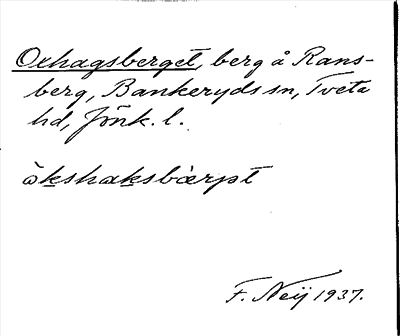 Oxhagsberget, berg å Rans-
berg, Bankeryds sn, Tveta
hd, Jönk. l.
ò̀kshaksbàrjet
F. Neij 1937.